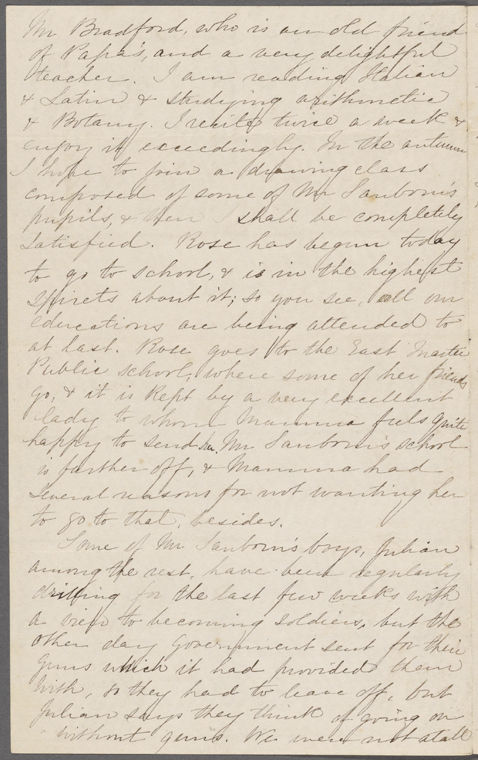 Mr Bradford, who is an old friend
of Papa's, and a very delightful
teacher. I am reading Italian
& Latin & studying arithmetic
& Botany. I recite twice a week &
enjoy it exceedingly. In the autumn
I hope to join a drawing class
composed of some of Mr Sanborn's
pupils, & then I shall be completely
satisfied. Rose has begun today
to go to school, & is in the highest
spirits about it; so you see, all our
educations are being attended to
at last. Rose goes to the East
Public school, where some of her friends
go, & it is kept by a very excellent
lady to whom Mamma feels quite
happy to send her. Mr Sanborn's school
is farther off, & Mamma had
several reasons for not wanting her
to go to that, besides.
Some of Mr Sanborn's boys, Julian
among the rest, have been regularly
drilling for the last few weeks with
a view to becoming soldiers, but the
other day government sent for their
guns which it had provided them
with, so they had to leave off, but
Julian says they think of going on
without guns. We were not at all